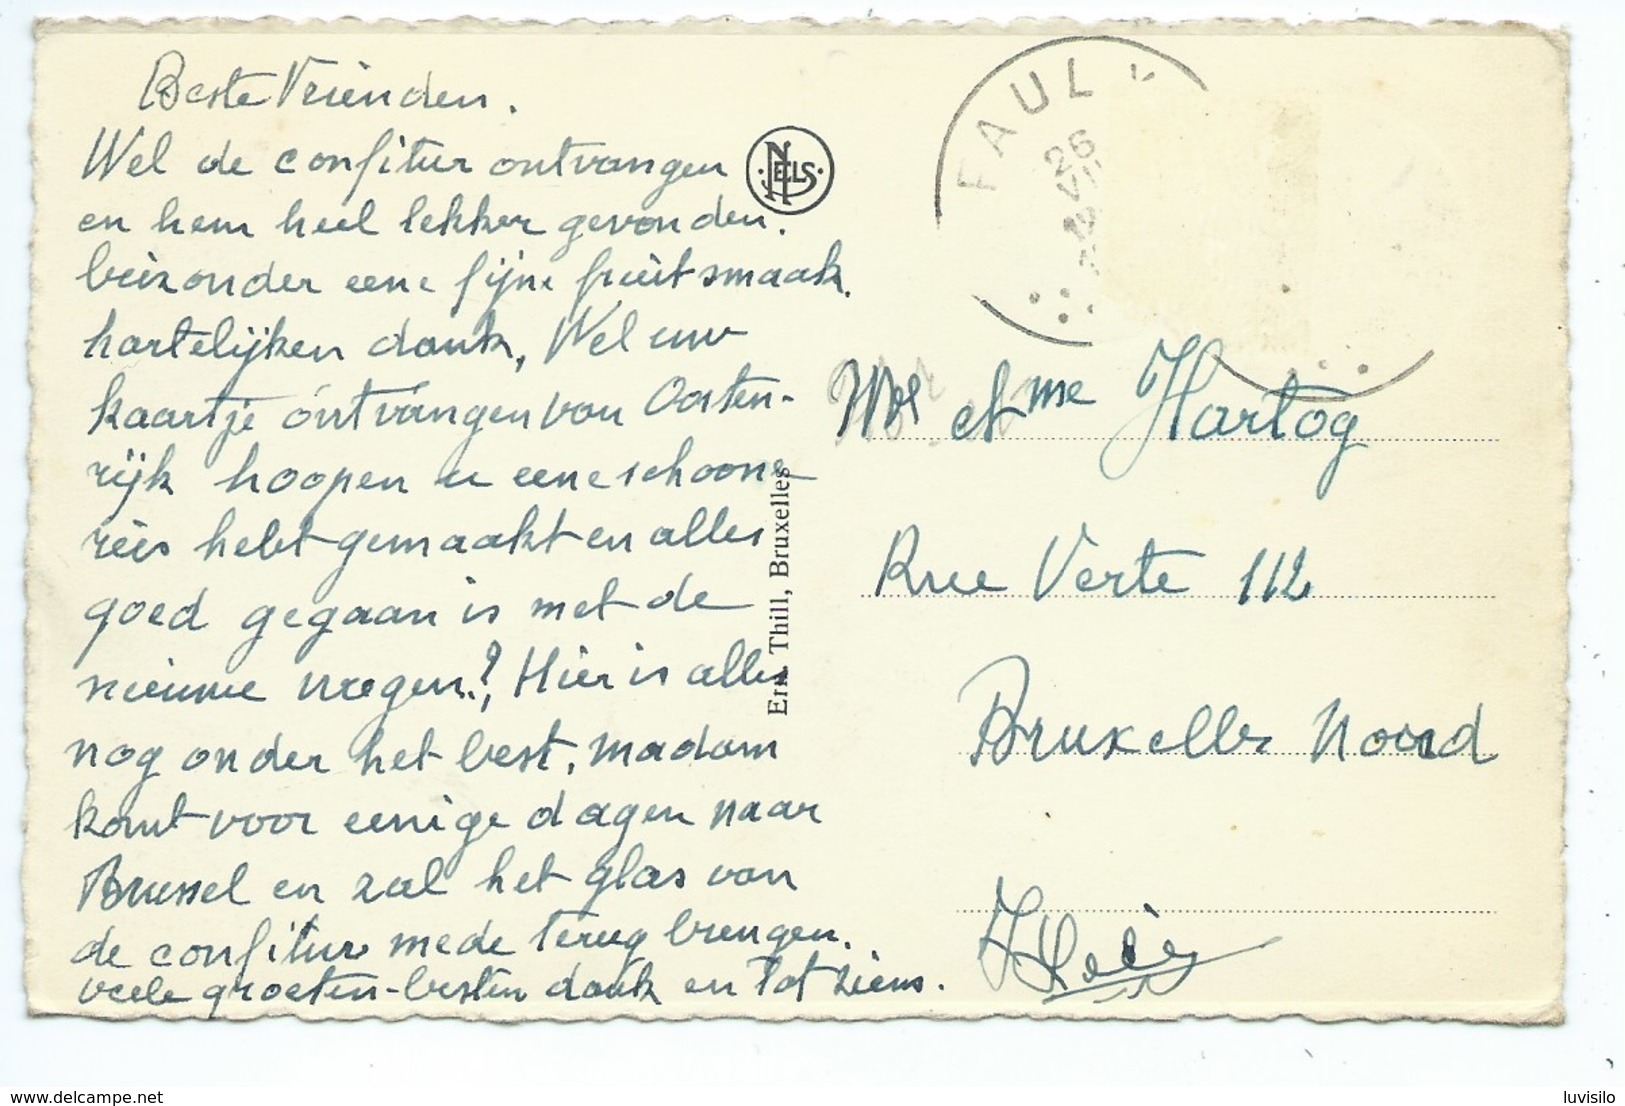 Beste Vrienden.
Wel de confitur ontvangen
en hem heel lekker gevonden.
beizonder eene fijne fruit smaak.
hartelijken dank, Wel uw
kaartje ontvangen van Oosten-
rijk hoopen u eene schoone
reis hebt gemaakt en alles
goed gegaan is met de
nieuwe wegen.?, Hier is alles
nog onder het best, madam
komt voor eenige dagen naar
Brussel en zal het glas van
de confitur mede terug brengen.
veele groeten-besten dank en tot ziens.
NELS
Ern. Thill, Bruxelles
FAUL
26
VII
Mr et Mme Hartog
Rue Verte 112
Bruxelles Noord
www.delcampe.net
luvisilo